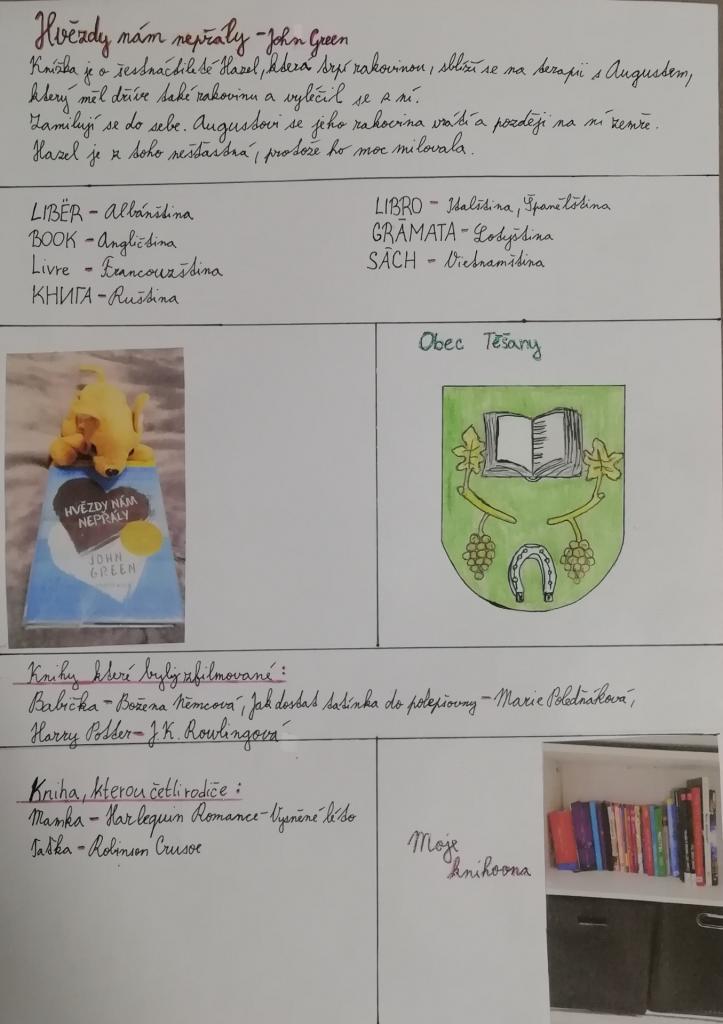 Hvězdy nám nepřály - John Green
Knížka je o šestnáctileté Hazel, která trpí rakovinou, sblíží se na terapii s Augustem,
který měl dříve také rakovinu a vyléčil se z ní.
Zamilují se do sebe. Augustovi se jeho rakovina vrátí a později na ni zemře.
Hazel je z toho nešťastná, protože ho moc milovala.
LIBËR - Albánština
BOOK - Angličtina
Livre - Francouzština
КНИГА - Ruština
LIBRO - Italština, Španělština
GRĀMATA - Lotyština
SÁCH - Vietnamština
HVĚZDY NÁM
NEPŘÁLY
JOHN
GREEN
Obec Těšany
Knihy které byly zfilmované:
Babička - Božena Němcová, Jak dostat tatínka do polepšovny - Marie Poledňáková,
Harry Potter - J.K. Rowlingová
Kniha, kterou četli rodiče:
Mamka - Harlequin Romance - Vysněné léto
Taťka - Robinson Crusoe
Moje
knihovna